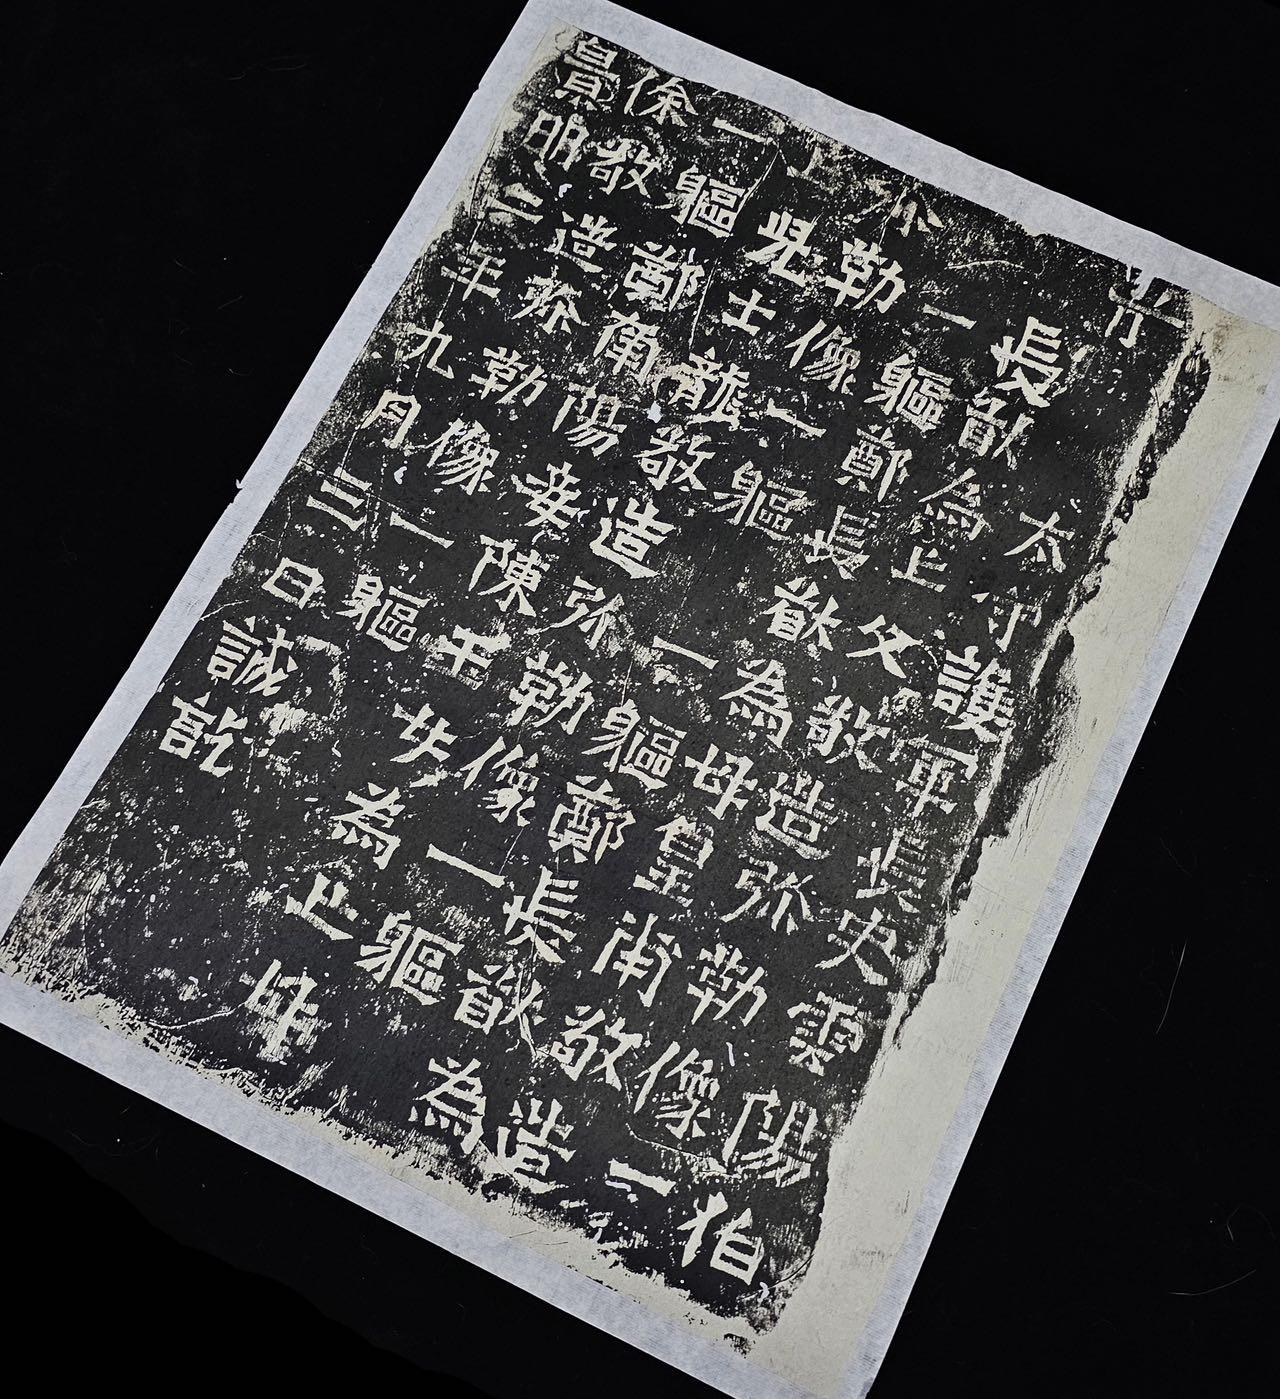 太守護軍長史雲陽伯
長猷為亡父敬造弥勒像一
一軀鄭長猷為母皇甫敬造
弥勒像一軀一軀鄭長猷為
亡兒士龍敬造弥勒像一軀
一軀南陽妾陳玉女為亡母
徐敬造弥勒像一軀
景明二年九月三日誡訖